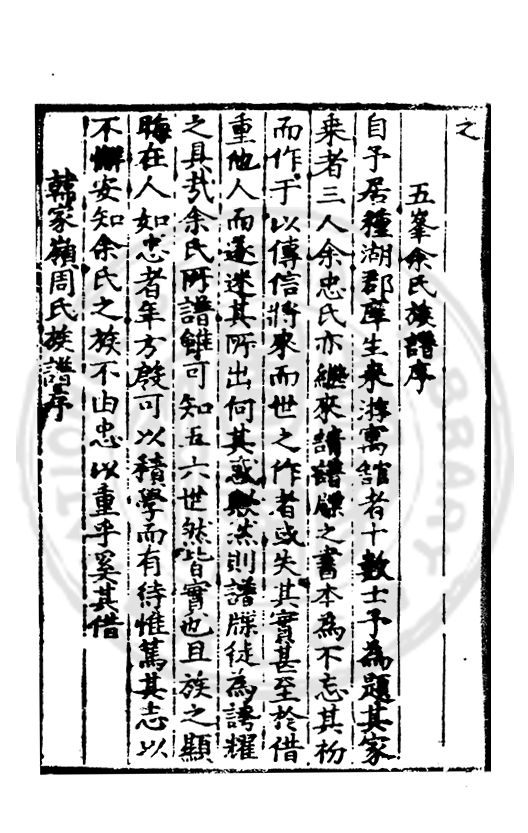 之
五峯余氏族譜序
自予居種湖郡庠生來游寓舘者十數士予為題其家
乗者三人余忠氏亦繼來請譜牒之書本為不忘其枌
而作于以傳信將來而世之作者或失其實甚至於借
重他人而遂迷其所出何其惑歟然則譜牒徒為誇耀
之具哉余氏所譜雖可知五六世然皆實也且族之顯
晦在人如忠者年方殷可以積學而有待惟篤其志以
不懈安知余氏之族不由忠以重乎奚其借
韓家嶺周氏族譜序